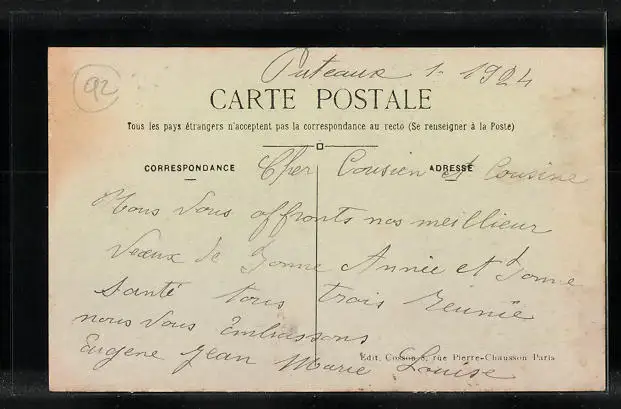 Puteaux 1- 1924
92
CARTE POSTALE
Tous les pays étrangers n'acceptent pas la correspondance au recto (Se renseigner à la Poste)
CORRESPONDANCE
ADRESSE
Cher Cousien et Cousine
Nous vous offronts nos meillieur
Veaux de Bonne Année et Bonne
Santé tous trois reunie
nous vous Embrassons
Eugène Jean Marie Louise
Edit. Cosson 8, rue Pierre-Chausson Paris